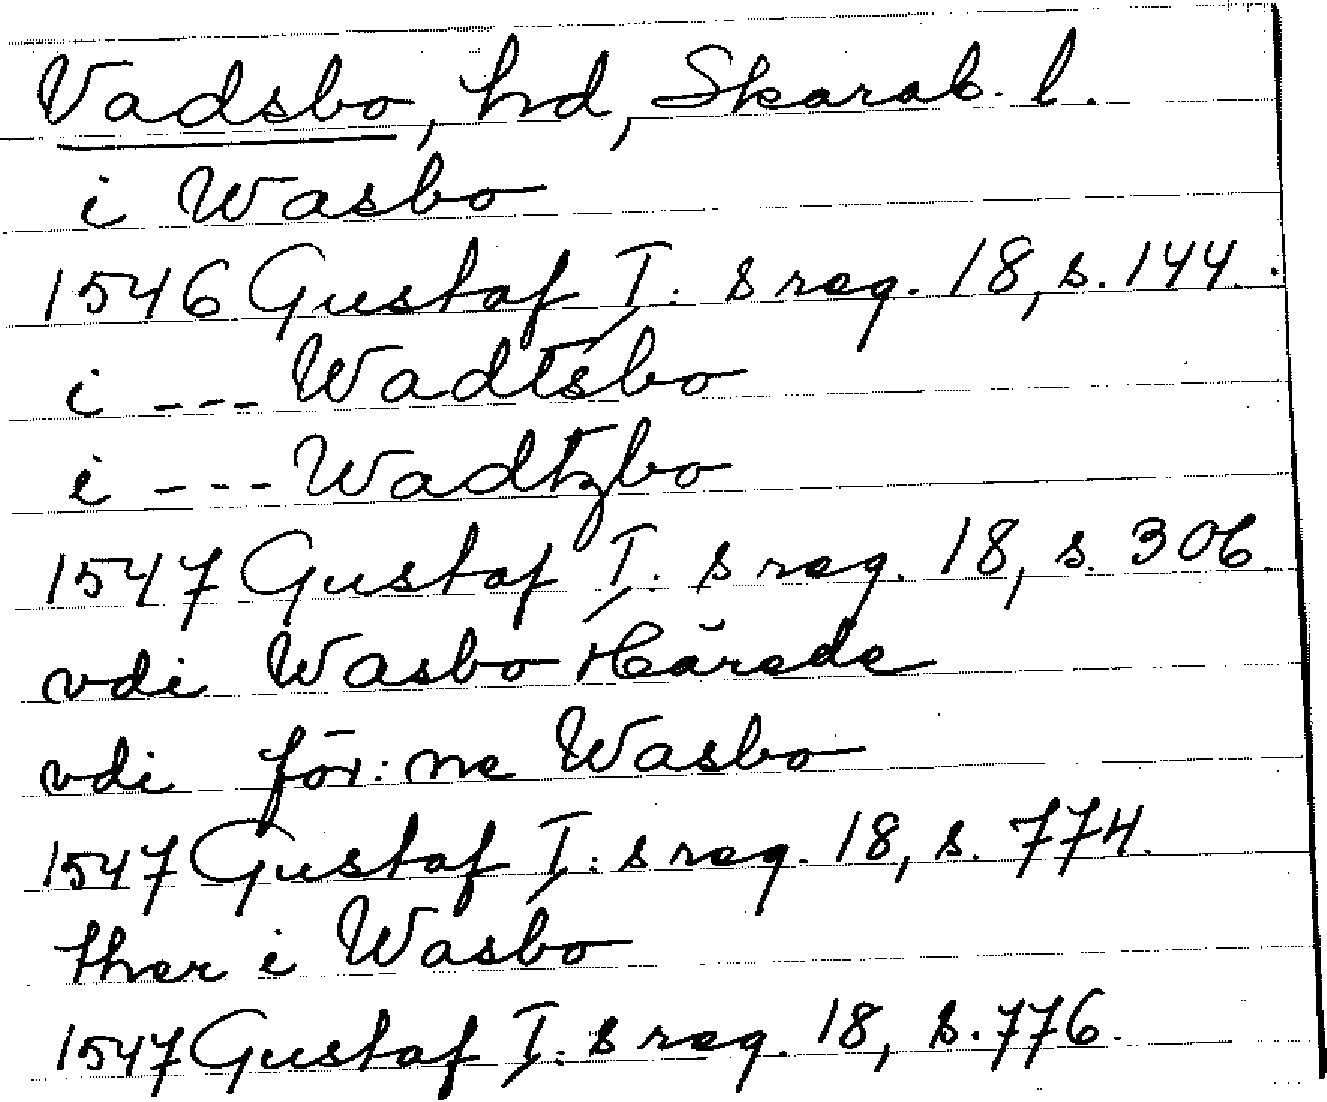 Vadsbo, hd, Skarab. l.
i Wasbo
1546 Gustaf I: s reg. 18, s. 144.
i --- Wadtsbo
i --- Wadtzbo
1547 Gustaf I: s reg. 18, s. 306
vdi Wasbo Härede
vdi för:ne Wasbo
1547 Gustaf I: s reg. 18, s. 774.
ther i Wasbo
1547 Gustaf I: s reg. 18, s. 776.